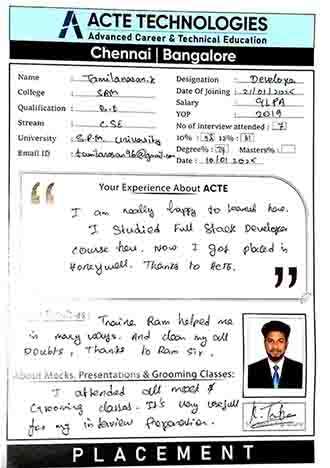 ACTE TECHNOLOGIES
Advanced Career & Technical Education
Chennai | Bangalore
Name : Tamilarasan.k
Designation : Developer
College : SRM
Date Of Joining : 21/01/2025
Qualification : B.E
Salary : 9LPA
Stream : C.SE
YOP : 2019
University : S.R.M. University
No of interview attended : 7
10% : 12% : 81
Email ID : tamilarasan96@gmail.com
Degree% : Masters% :
Date : 10/01/2025
Your Experience About ACTE
“
I am really happy to learned here.
I Studied Full Stack Developer
course here. Now I got placed in
Honeywell. Thanks to ACTE.
”
Trainer Ram helped me
in many ways. And clear my all
Doubts, Thanks to Ram Sir.
About Mocks, Presentations & Grooming Classes:
I attended all mock &
Grooming classes. It's very usefull
for my interview Preparation.
PLACEMENT